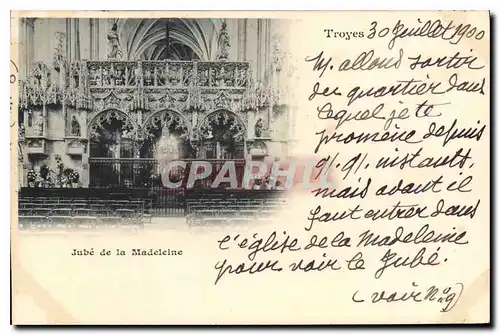 Troyes 30 Juillet 1900
N. allons sortir
du quartier dans
lequel je te
promène depuis
q/. q/. instants,
mais avant il
faut entrer dans
l'église de la Madeleine
pour voir le Jubé.
(voir N° 9)
CPARAMA
Jubé de la Madeleine